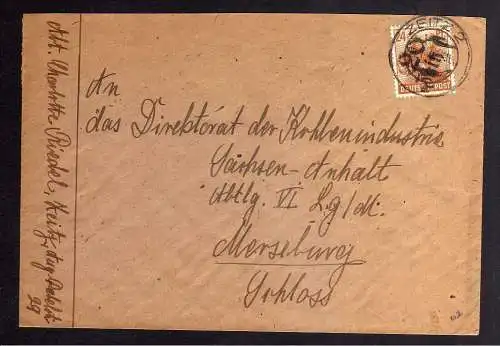 Abs. Charlotte Riedel, Zeitz,
29
An
das Direktorat der Kohlenindustrie
Sachsen-Anhalt
Abtlg. VI Lg/M.
Merseburg
Schloss
ZEITZ 2
DEUTSCHE POST